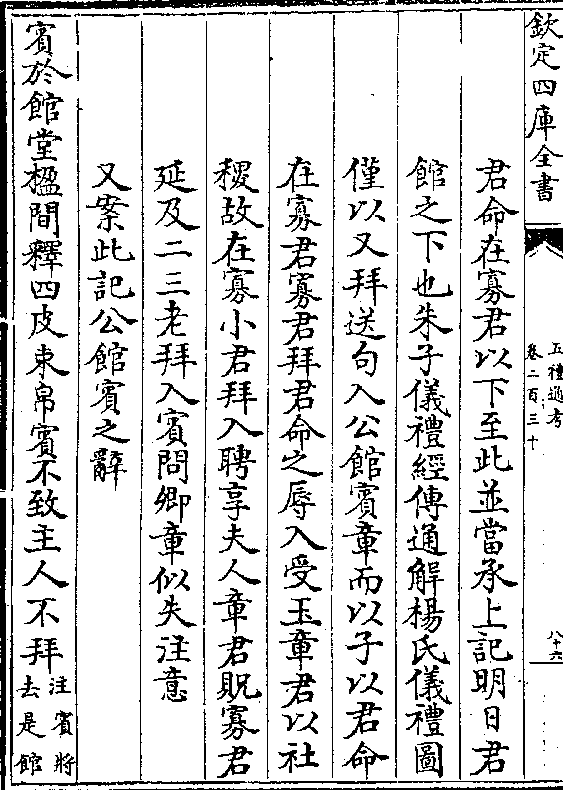 欽定四庫全書
五禮通考
卷二百三十
八十六
君命在寡君以下至此並當承上記明日君
館之下也朱子儀禮經傳通解楊氏儀禮圖
僅以又拜送句入公館賓章而以子以君命
在寡君寡君拜君命之辱入受玉章君以社
稷故在寡小君拜入聘享夫人章君貺寡君
延及二三老拜入賓問卿章似失注意
又案此記公館賓之辭
賓於館堂楹間釋四皮束帛賓不致主人不拜注賓將
去是館